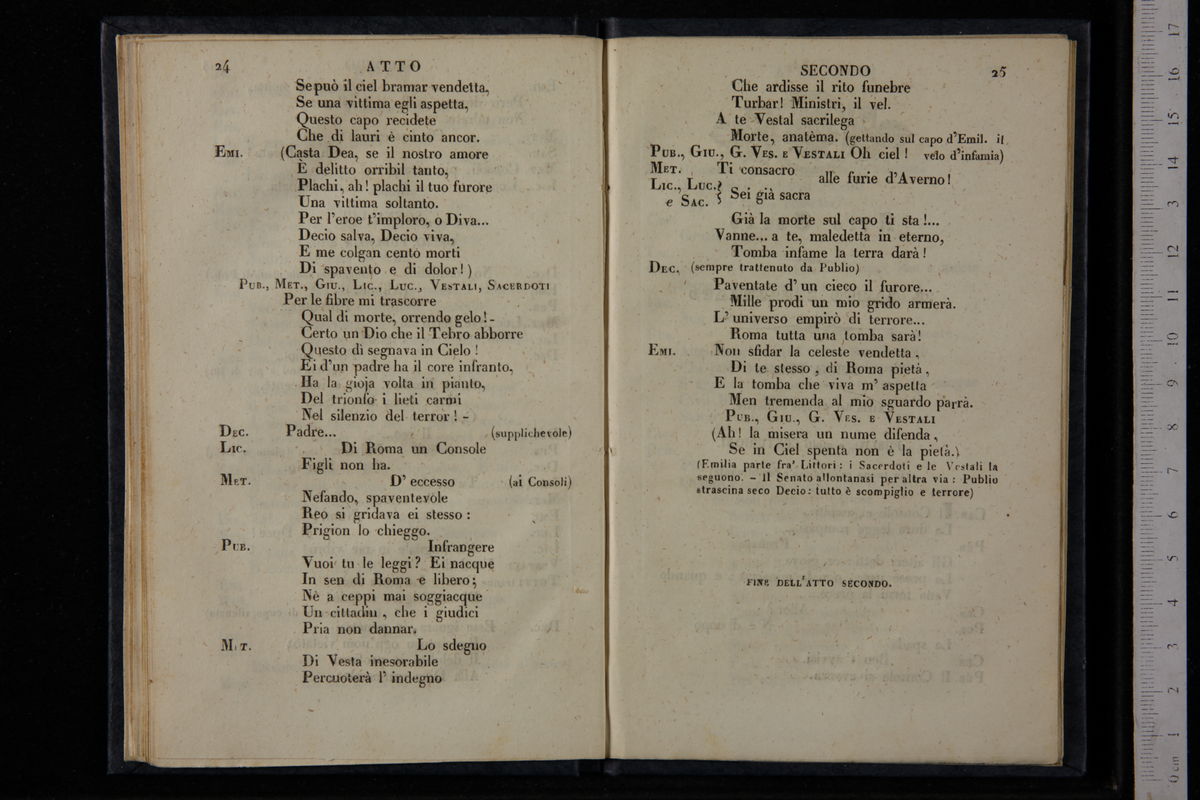 24
ATTO
Se può il ciel bramar vendetta,
Se una vittima egli aspetta,
Questo capo recidete
Che di lauri è cinto ancor.
EMI. (Casta Dea, se il nostro amore
È delitto orribil tanto,
Plachi, ah! plachi il tuo furore
Una vittima soltanto.
Per l'eroe t'imploro, o Diva...
Decio salva, Decio viva,
E me colgan cento morti
Di spavento e di dolor!)
PUB., MET., GIU., LIC., LUC., VESTALI, SACERDOTI
Per le fibre mi trascorre
Qual di morte, orrendo gelo! -
Certo un Dio che il Tebro abborre
Questo dì segnava in Cielo!
Ei d'un padre ha il core infranto,
Ha la gioja volta in pianto,
Del trionfo i lieti carmi
Nel silenzio del terror! -
DEC. Padre... (supplichevole)
LIC. Di Roma un Console
Figli non ha.
MET. D' eccesso (ai Consoli)
Nefando, spaventevole
Reo si gridava ei stesso:
Prigion lo chieggo.
PUB. Infrangere
Vuoi tu le leggi? Ei nacque
In sen di Roma e libero;
Nè a ceppi mai soggiacque
Un cittadin, che i giudici
Pria non dannar.
M.T. Lo sdegno
Di Vesta inesorabile
Percuoterà l' indegno
SECONDO
25
Che ardisse il rito funebre
Turbar! Ministri, il vel.
A te Vestal sacrilega
Morte, anatèma. (gettando sul capo d'Emil. il
PUB., GIU., G. VES. E VESTALI Oh ciel! velo d'infamia)
MET. Ti consacro
alle furie d'Averno!
LIC., LUC.
e SAC. Sei già sacra
Già la morte sul capo ti sta!...
Vanne... a te, maledetta in eterno,
Tomba infame la terra darà!
DEC. (sempre trattenuto da Publio)
Paventate d' un cieco il furore...
Mille prodi un mio grido armerà.
L' universo empirò di terrore...
Roma tutta una tomba sarà!
EMI. Non sfidar la celeste vendetta,
Di te stesso, di Roma pietà,
E la tomba che viva m' aspetta
Men tremenda al mio sguardo parrà.
PUB., GIU., G. VES. E VESTALI
(Ah! la misera un nume difenda,
Se in Ciel spenta non è la pietà.)
(Emilia parte fra' Littori: i Sacerdoti e le Vestali la
seguono. - Il Senato allontanasi per altra via: Publio
strascina seco Decio: tutto è scompiglio e terrore)
FINE DELL'ATTO SECONDO.
0 cm 1 2 3 4 5 6 7 8 9 10 11 12 13 14 15 16 17